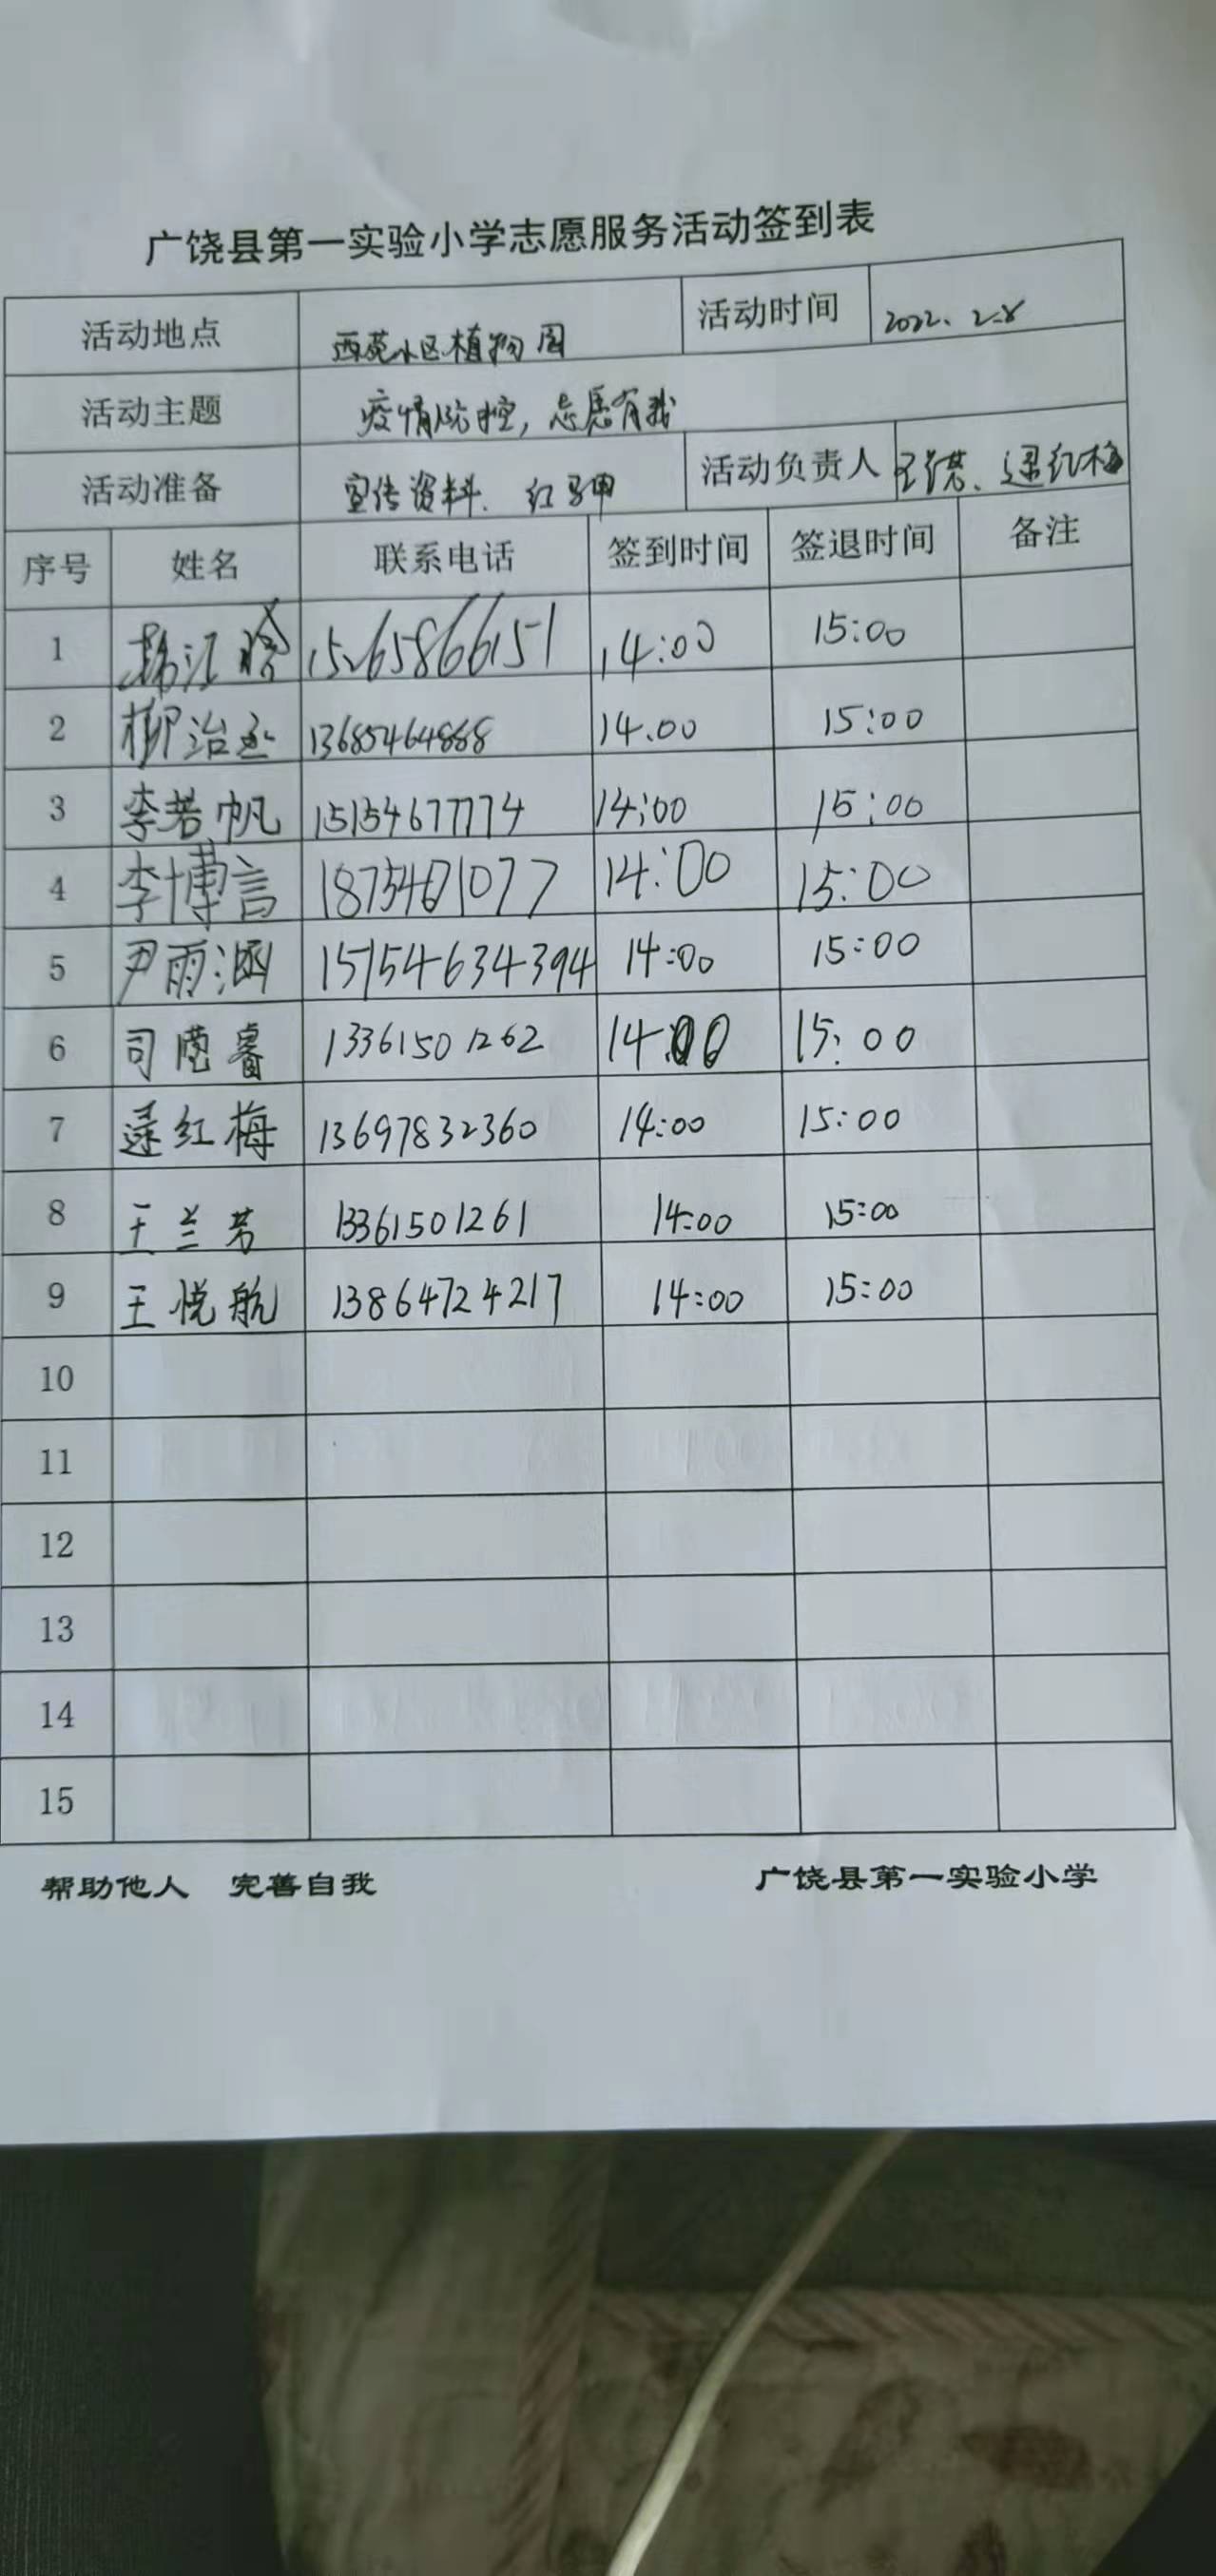 广饶县第一实验小学志愿服务活动签到表
活动地点 西苑小区植物园 活动时间 2022、2.8
活动主题 疫情防控，志愿有我
活动准备 宣传资料、红马甲 活动负责人 红梅
序号 姓名 联系电话 签到时间 签退时间 备注
1 14:00 15:00
2 柳治 13685464868 14.00 15:00
3 李若帆 15154677774 14:00 15:00
4 李博言 14:00 15:00
5 尹雨涵 15154634394 14:00 15:00
6 司 睿 13361501262 14:00 15:00
7 逯红梅 13697832360 14:00 15:00
8 王兰芳 13361501261 14:00 15:00
9 王悦航 13864724217 14:00 15:00
10
11
12
13
14
15
帮助他人 完善自我 广饶县第一实验小学